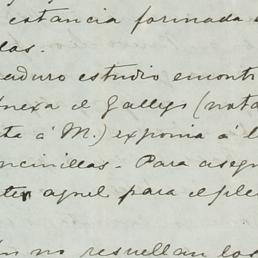 estancia formada
las.
aduro estudio encontr
nexa el Gallego (nota
te á M.) exponia á l
ncinillas. Para aseg
ter aquel para el ple
n no resuellan los